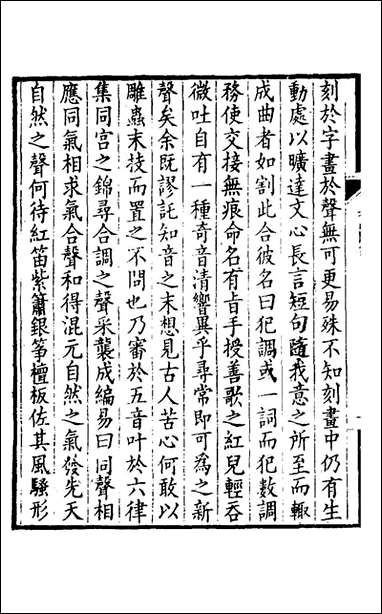 刻於字畫於聲無可更易殊不知刻畫中仍有生
動處以曠達文心長言短句隨我意之所至而輙
成曲者如割此合彼名曰犯調或一詞而犯數調
務使交接無痕命名有㫖手授善歌之紅兒輕吞
微吐自有一種奇音清響異乎尋常即可為之新
聲矣余既謬託知音之末想見古人苦心何敢以
雕蟲末技而置之不問也乃審於五音叶於六律
集同宮之錦尋合調之聲采襲成編易曰同聲相
應同氣相求氣合聲和得混元自然之氣發先天
自然之聲何待紅笛紫簫銀箏檀板佐其風騷形